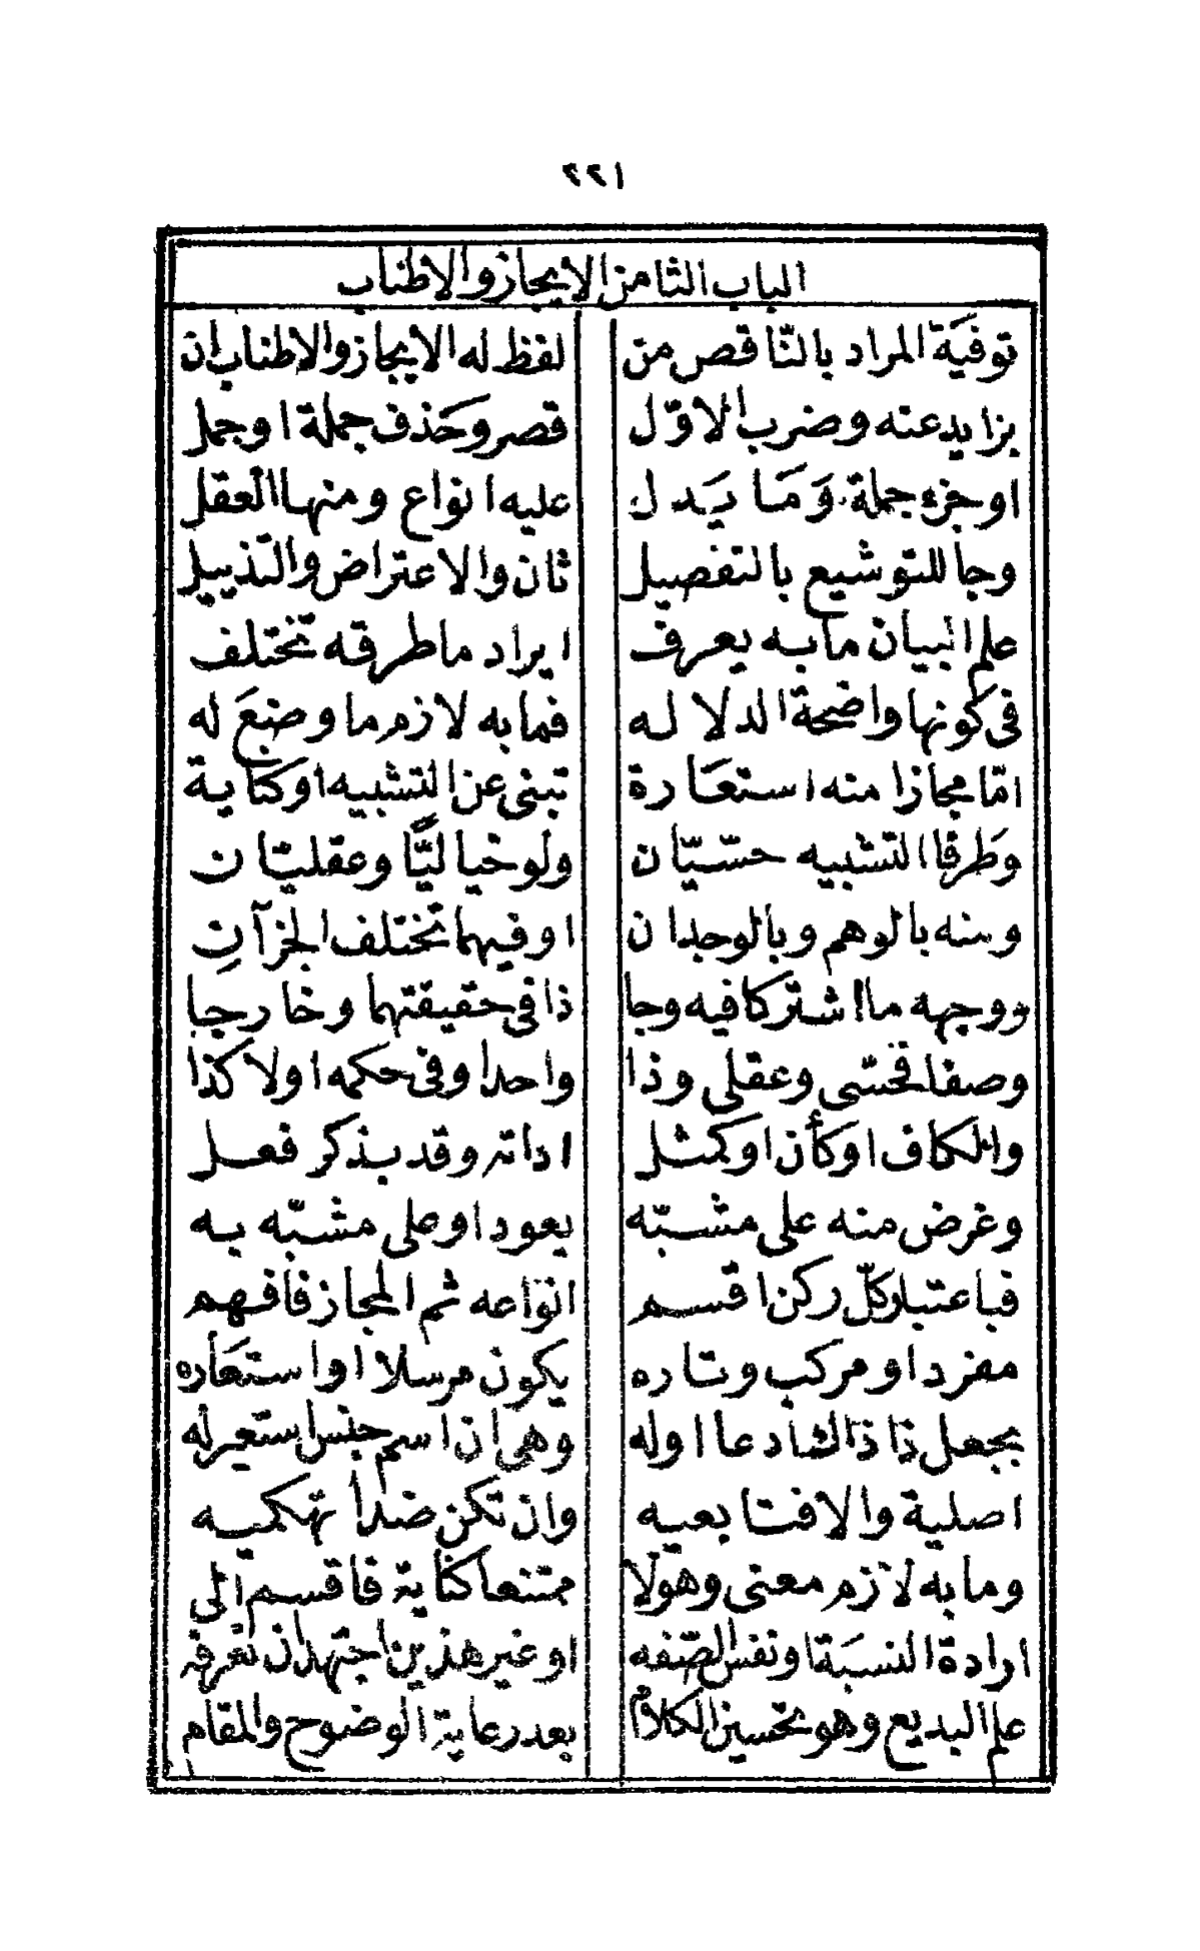 ٢٢١
الباب الثامن الايجاز والاطناب
توفية المراد بالنّاقص من لفظ له الايجاز والاطناب ان
بزايد عنه وضرب الاوّل قصر وحذف جملة او جمل
او جزء جملة وَمَا يَدل عليه انواع ومنها العقل
وجا للتوشيع بالتفصيل ثان والاعتراض والتذييل
علم البيان ما به يعرف ايراد ما طرقه تختلف
فى كونها واضحة الدلاله فما به لازم ما وضع له
امّا مجازا منه استعَارة تبنى عن التشبيه او كناية
وَطرفا التشبيه حسّيّان ولو خياليًّا وعقليّان
ومنه بالوهم وبالوجدان او فيهما تختلف الجزآنِ
ووجهه ما اشتركا فيه وجا ذا فى حقيقتهما وخارجا
وصفا فحسّى وعقلى وذا واحدا وفى حكمه اولا كذا
والكاف او كأن او كمثل اداته وقد بذكر فعل
وغرض منه على مشبّه يعود او على مشبّه به
فباعتبار كلّ ركن اقسم انواعه ثم المجاز فافهم
مفرد او مركب وتاره يكون مرسلا او استعَاره
بجعل ذا ذاك ادعا اوله وهى ان اسم جنس استعير له
اصلية والا فتابعيه وان تكن ضدا تهكميه
وما به لازم معنى وهو لا ممتنعا كناية فاقسم الى
ارادة النسبَة او نفس الصّفه او غير هذين اجتهد ان تعرفه
علم البديع وهو تحسين الكلام بعد رعاية الوضوح والمقام